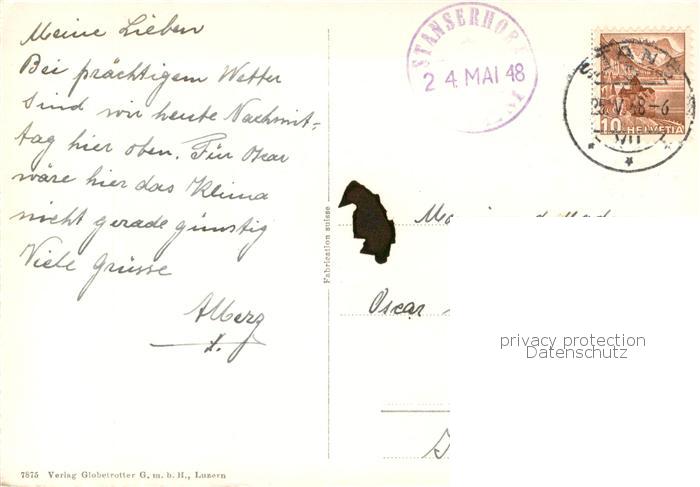 Meine Lieben
Bei prächtigem Wetter
sind wir heute Nachmit-
tag hier oben. Für Oscar
wäre hier das Klima
nicht gerade günstig
Viele Grüsse
STANSERHORN
24 MAI 48
STANS
25.V.48-6
10 HELVETIA
Fabrication suisse
Oscar
privacy protection
Datenschutz
7875 Verlag Globetrotter G. m. b. H., Luzern